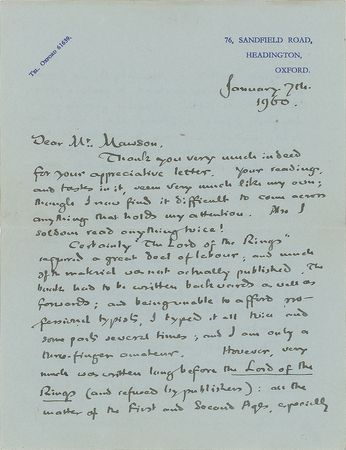 TEL. OXFORD 61639.
76, SANDFIELD ROAD,
HEADINGTON,
OXFORD.
January 7th.
1960.
Dear Mr. Mawson,
Thank you very much indeed
for your appreciative letter. Your readings,
and tastes in it, seem very much like my own;
though I now find it difficult to come across
anything that holds my attention. Also I
seldom read anything twice!
Certainly "The Lord of the Rings"
required a great deal of labour; and much
of the material was not actually published. The
books had to be written backwards as well as
forwards; and being unable to afford pro-
fessional typists, I typed it all twice and
some parts several times; and I am only a
three-finger amateur. However, very
much was written long before the Lord of the
Rings (and refused by publishers): all the
matter of the First and Second Ages, especially